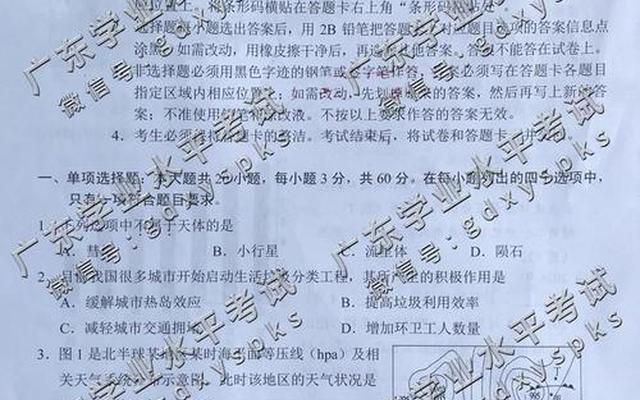 上。将条形码横贴在答题卡右上角“条形码
选择题每小题选出答案后，用 2B 铅笔把答题卡对应题目选项的答案信息点
涂黑。如需改动，用橡皮擦干净后，再选涂其他答案。答案不能答在试卷上。
非选择题必须用黑色字迹的钢笔或签字笔作答，答案必须写在答题卡各题目
指定区域内相应位置上；如需改动，先划掉原来的答案，然后再写上新的答
案；不准使用铅笔和涂改液。不按以上要求作答的答案无效。
4. 考生必须保持答题卡的整洁。考试结束后，将试卷和答题卡一并交回。
一、单项选择题：本大题共 20 小题，每小题 3 分，共 60 分。在每小题列出的四个选项中，
只有一项符合题目要求。
1. 下列选项中不属于天体的是
A. 彗星 B. 小行星 C. 流星体 D. 陨石
2. 目前我国很多城市开始启动生活垃圾分类工程，其所产生的积极作用是
A. 缓解城市热岛效应 B. 提高垃圾利用效率
C. 减轻城市交通拥堵 D. 增加环卫工人数量
3. 图 1 是北半球某地区某时海平面等压线（hpa）及相
关天气系统分布示意图，此时该地区的天气状况是
995
广东学业水平考试
微信号：gdxyspks
广东学业水平考试
微信号：gdxyspks
广东学业水平考试
微信号：gdxyspks
广东学业水平考试
微信号：gdxyspks